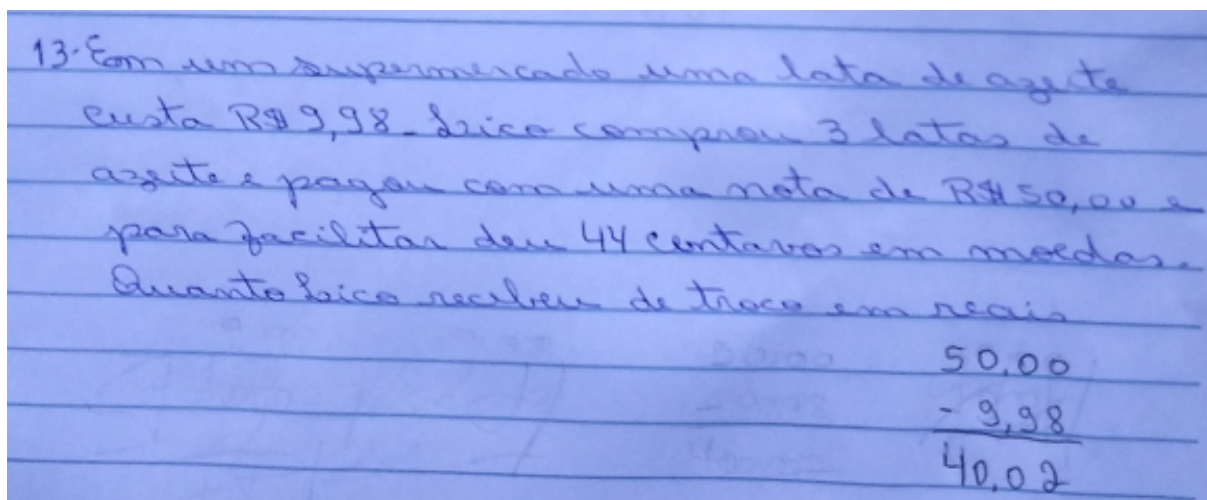 13. Em um supermercado uma lata de azeite
custa R$ 9,98. Lica comprou 3 latas de
azeite e pagou com uma nota de R$ 50,00 e
para facilitar deu 44 centavos em moedas.
Quanto Lica recebeu de troco em reais
50,00
- 9,98
40,02